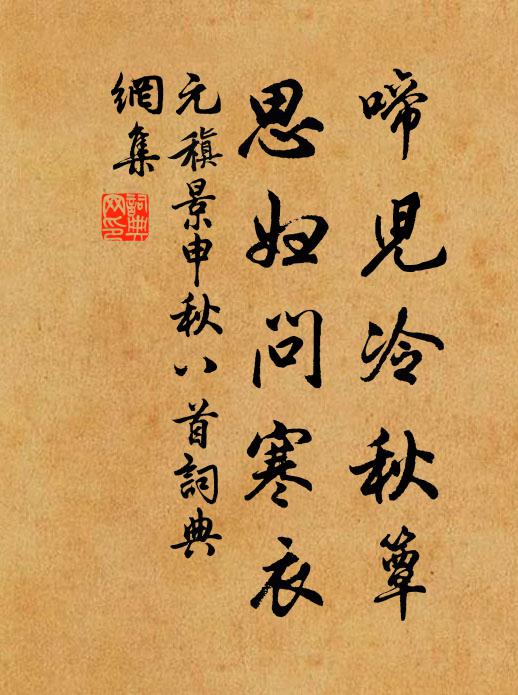 啼兒冷秋簟
思婦問寒衣
元稹景申秋八首詞典
網集
詞典网印